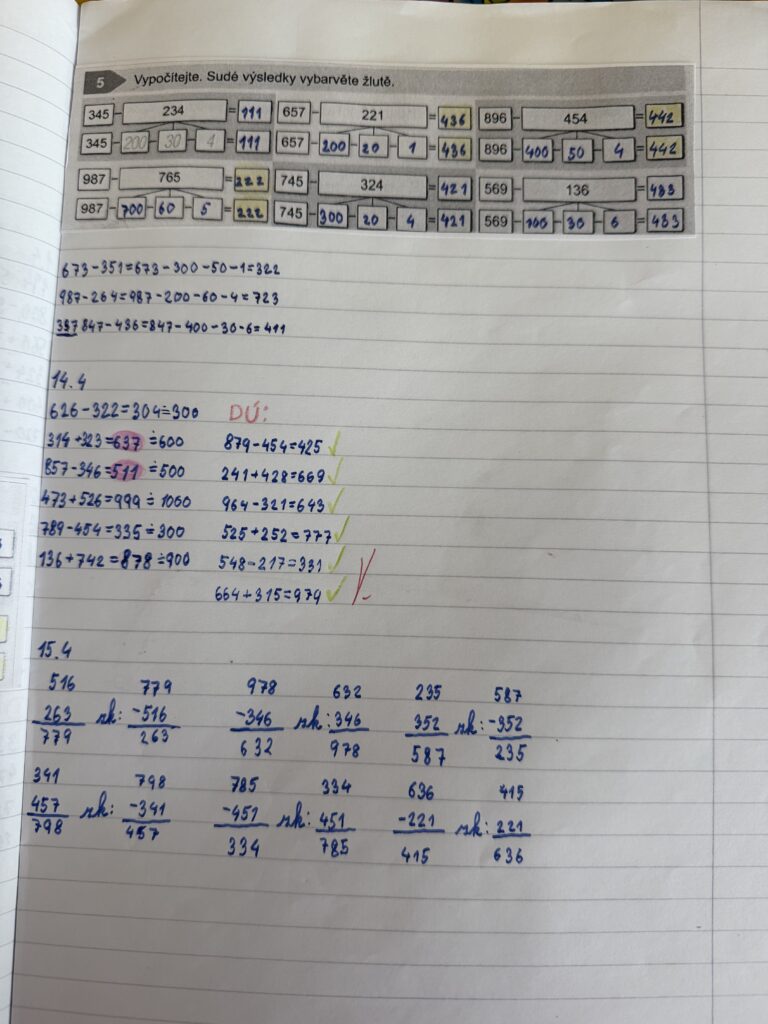 5 Vypočítejte. Sudé výsledky vybarvěte žlutě.
345 - 234 = 111 657 - 221 = 436 896 - 454 = 442
345 - 200 - 30 - 4 = 111 657 - 200 - 20 - 1 = 436 896 - 400 - 50 - 4 = 442
987 - 765 = 222 745 - 324 = 421 569 - 136 = 433
987 - 700 - 60 - 5 = 222 745 - 300 - 20 - 4 = 421 569 - 100 - 30 - 6 = 433
673-351=673-300-50-1=322
987-264=987-200-60-4=723
847-436=847-400-30-6=411
14.4
626-322=304≐300 DÚ:
314+323=637≐600 879-454=425
857-346=511≐500 241+428=669
473+526=999≐1000 964-321=643
789-454=335≐300 525+252=777
136+742=878≐900 548-217=331
664+315=979
15.4
516 779 978 632 235 587
263 zk: -516 -346 zk: 346 352 zk: -352
779 263 632 978 587 235
341 798 785 334 636 415
457 zk: -341 -451 zk: 451 -221 zk: 221
798 457 334 785 415 636